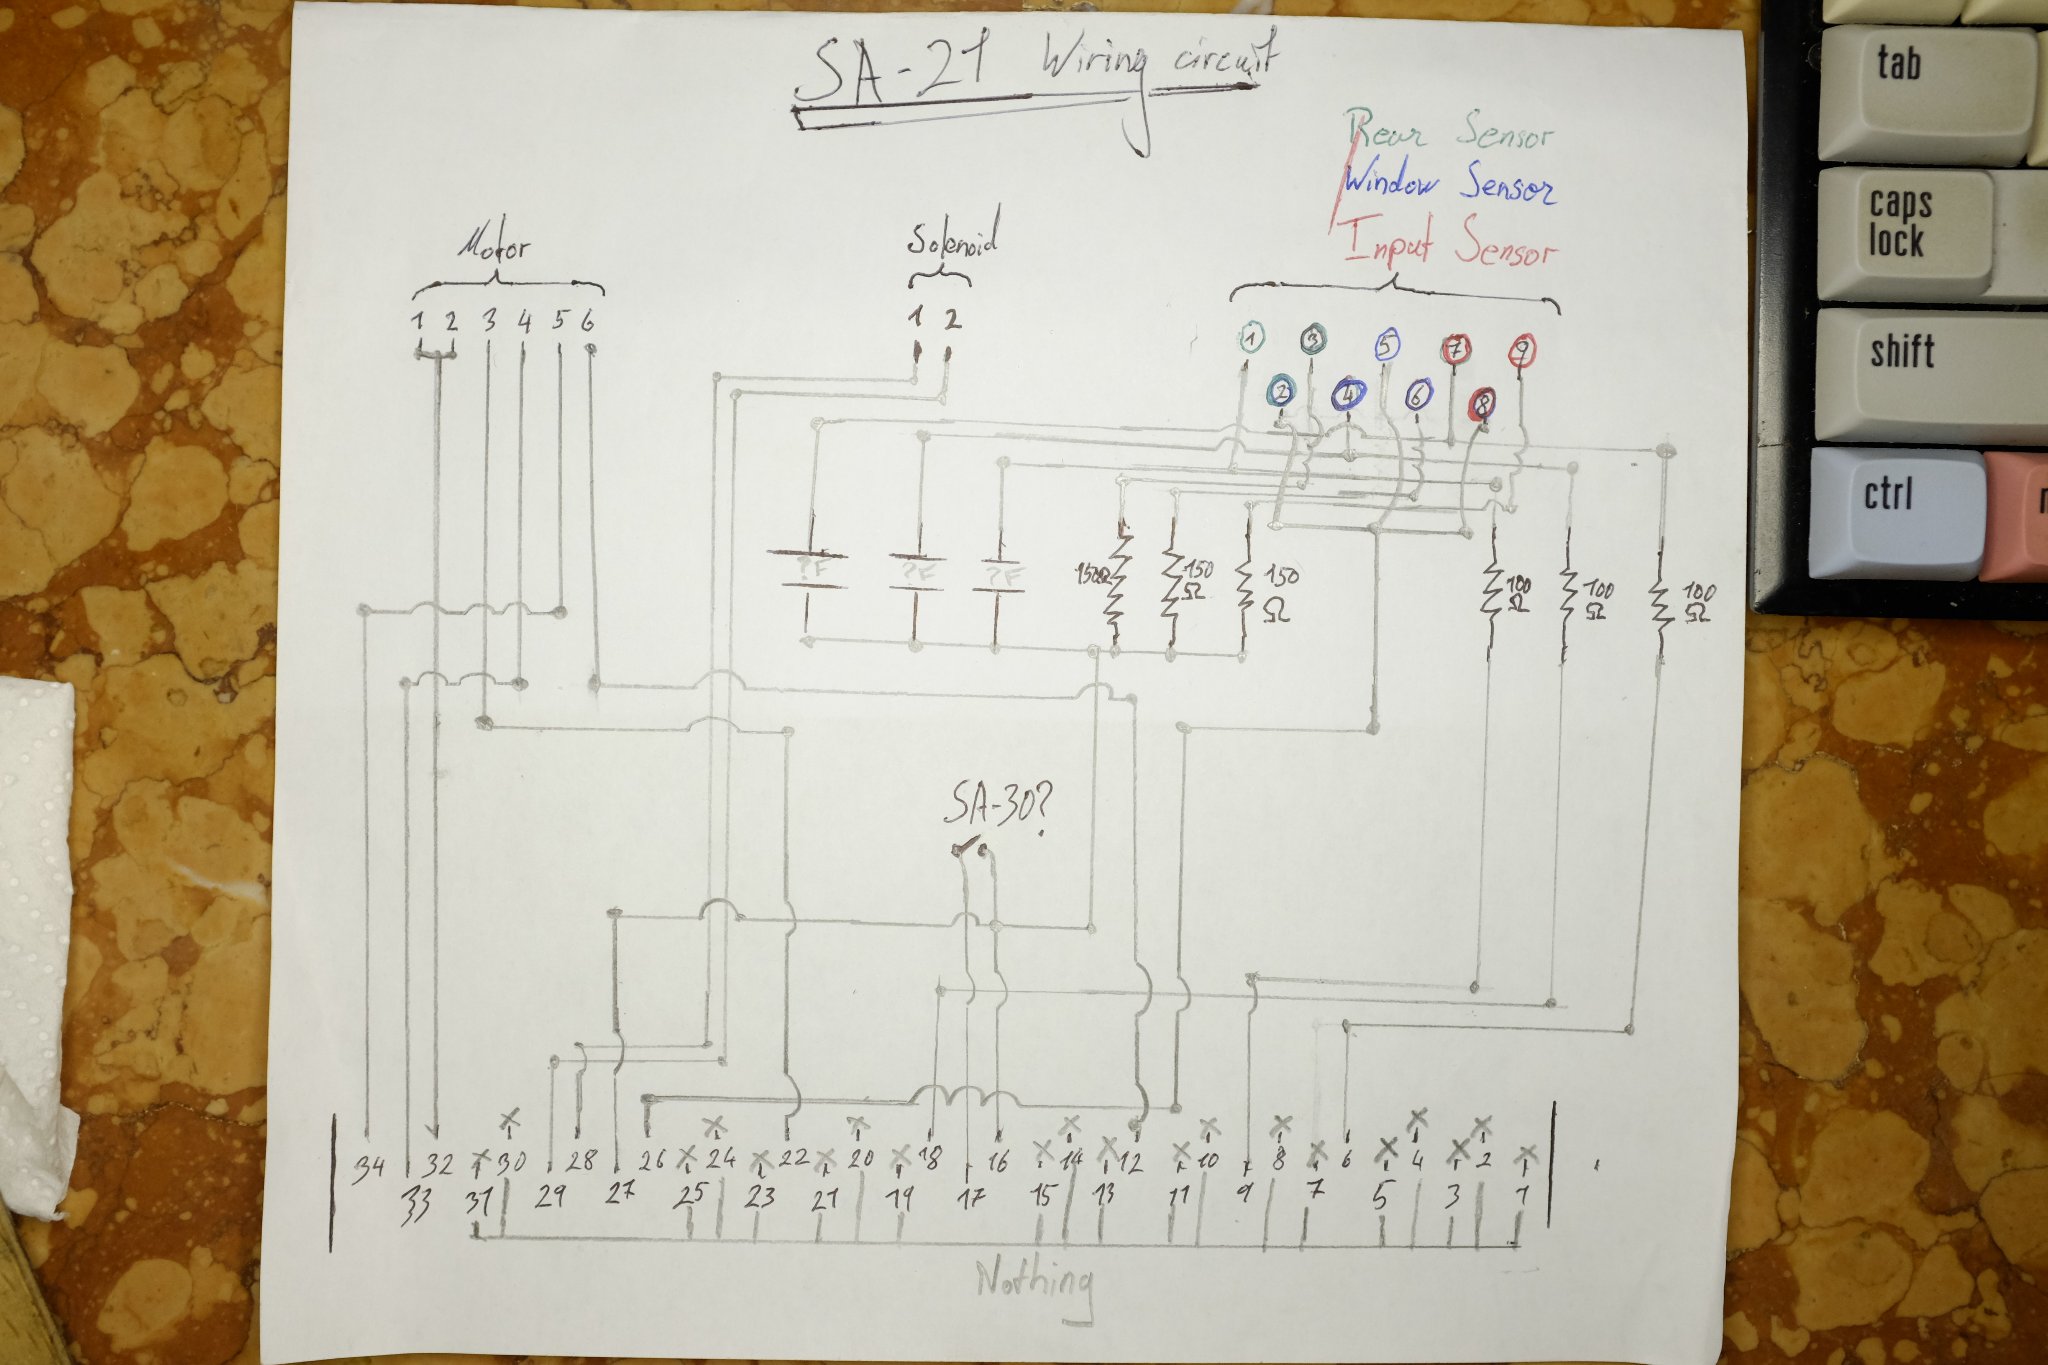 SA-21 Wiring circuit
Rear Sensor
Window Sensor
Input Sensor
Motor
Solenoid
1 2 3 4 5 6
1 2
1 3 5 7 9
2 4 6 8
?F ?F ?F
150Ω 150Ω 150Ω
100Ω 100Ω 100Ω
SA-30?
34 32 30 28 26 24 22 20 18 16 14 12 10 8 6 4 2
33 31 29 27 25 23 21 19 17 15 13 11 9 7 5 3 1
Nothing
tab
caps lock
shift
ctrl